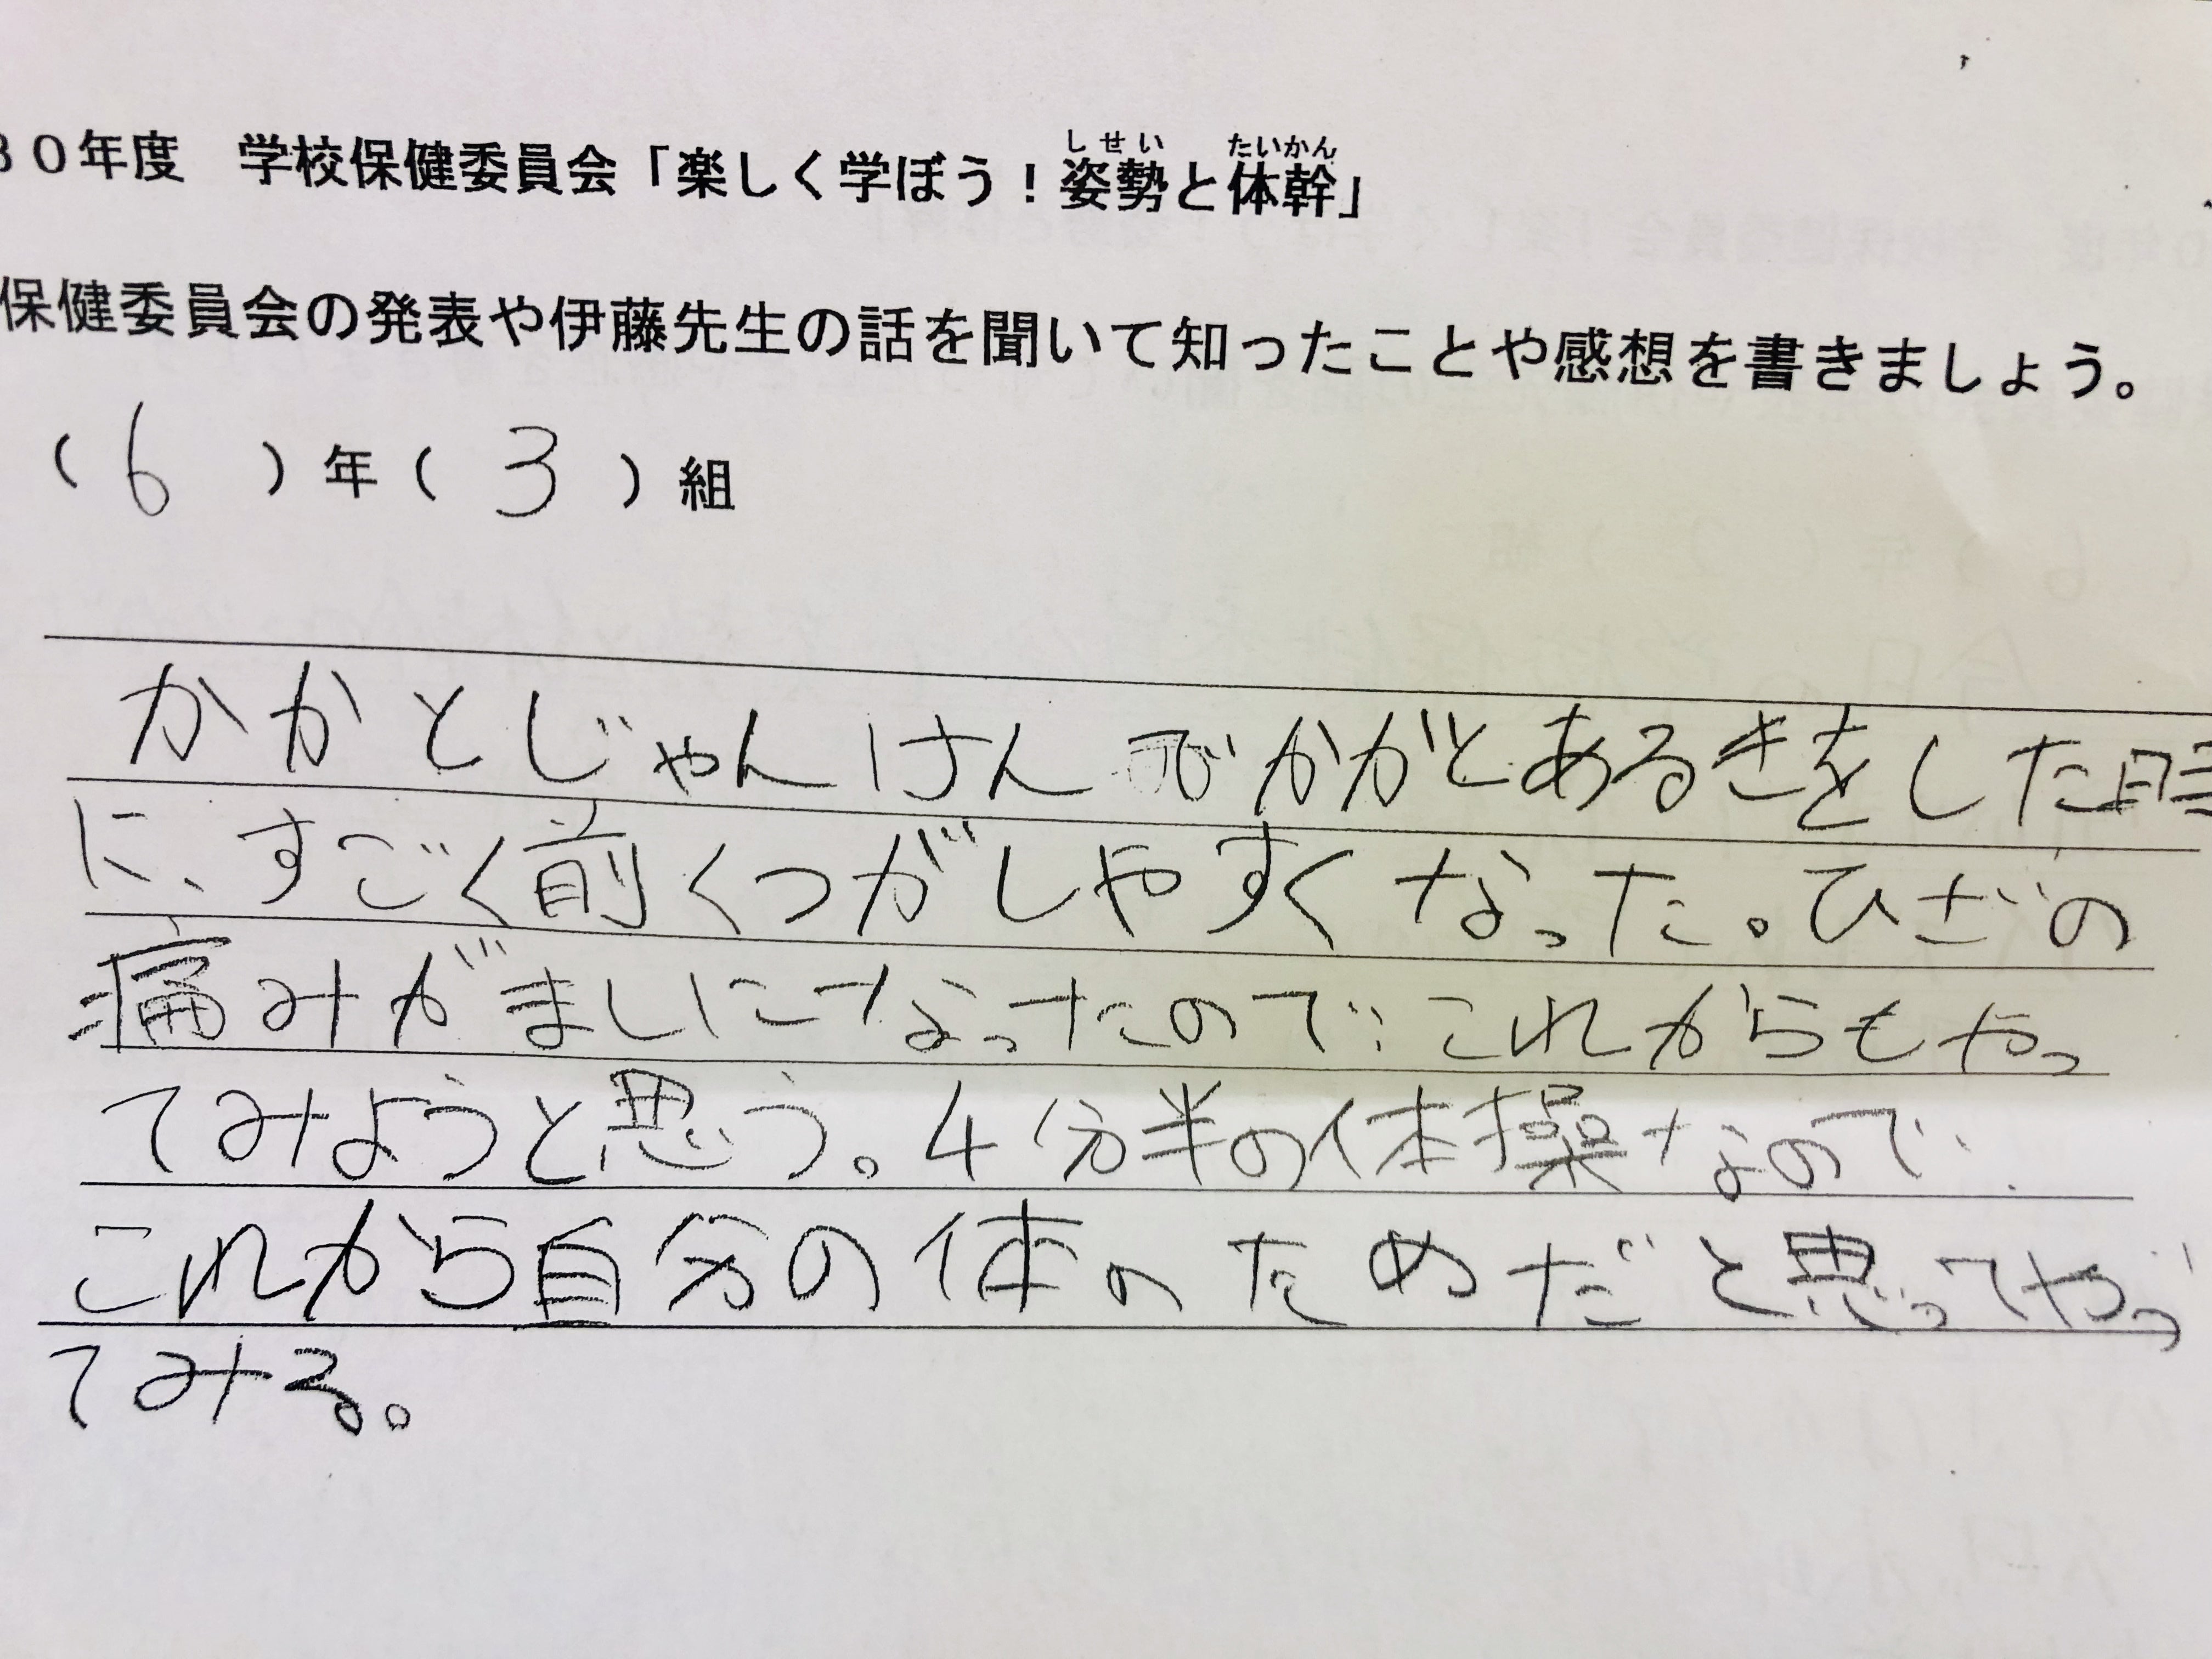 30年度　学校保健委員会「楽しく学ぼう！姿勢と体幹」
しせい　たいかん
保健委員会の発表や伊藤先生の話を聞いて知ったことや感想を書きましょう。
（6）年（3）組
かかとじゃんけんでかがとあるきをした時
に、すごく前くつがしやすくなった。ひざの
痛みがましになったので、これからもやっ
てみようと思う。4分半の体操なので、
これから自分の体のためだと思ってやっ
てみる。